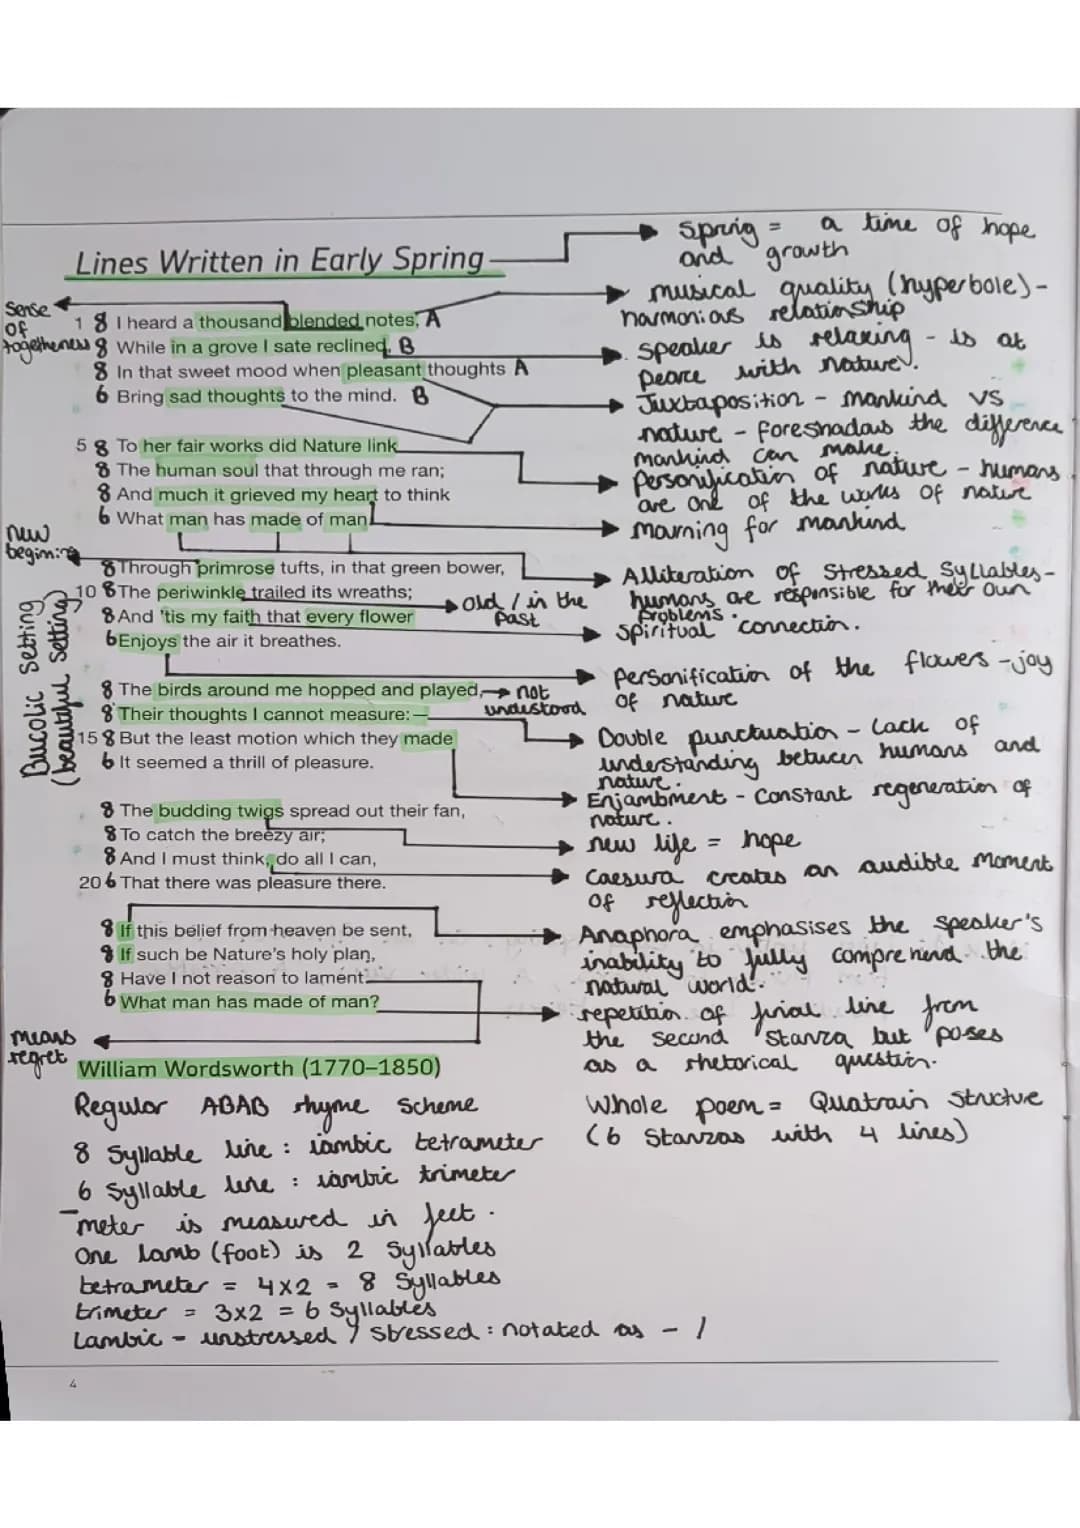 Lines Written in Early Spring
Spring = a time of hope
and growth
musical quality (hyperbole) -
harmonious relationship
Sense
of
togetheness
1 8 I heard a thousand blended notes, A
8 While in a grove I sate reclined, B
8 In that sweet mood when pleasant thoughts A
6 Bring sad thoughts to the mind. B
Speaker is relaxing - is at
peace with nature.
Juxtaposition - mankind vs
nature - foreshadows the difference
mankind can make.
5 8 To her fair works did Nature link
8 The human soul that through me ran;
8 And much it grieved my heart to think
6 What man has made of man.
Personification of nature - humans
are one of the works of nature
mourning for mankind
new
begining
8 Through primrose tufts, in that green bower,
10 8 The periwinkle trailed its wreaths;
8 And 'tis my faith that every flower
6 Enjoys the air it breathes.
old / in the
past
Alliteration of Stressed Syllables -
humans are responsible for their own
problems.
Spiritual connection.
Bucolic setting
(beautiful setting)
8 The birds around me hopped and played,
8 Their thoughts I cannot measure:—
15 8 But the least motion which they made
6 It seemed a thrill of pleasure.
not
understood
Personification of the flowers - joy
of nature
Double punctuation - Lack of
understanding between humans and
nature.
Enjambment - Constant regeneration of
nature.
8 The budding twigs spread out their fan,
8 To catch the breezy air;
8 And I must think, do all I can,
20 6 That there was pleasure there.
new life = hope
Caesura creates an audible moment
of reflection
8 If this belief from heaven be sent,
8 If such be Nature's holy plan,
8 Have I not reason to lament
6 What man has made of man?
Anaphora emphasises the speaker's
inability to fully comprehend the
natural world.
repetition of final line from
the second stanza but poses
as a rhetorical question.
means
regret
William Wordsworth (1770–1850)
Regular ABAB rhyme scheme
8 Syllable line : iambic tetrameter
6 Syllable line : iambic trimeter
meter is measured in feet.
One Iamb (foot) is 2 Syllables
tetrameter = 4x2 = 8 Syllables
trimeter = 3x2 = 6 Syllables
Iambic - unstressed / stressed : notated as - /
Whole poem = Quatrain structure
(6 Stanzas with 4 lines)
4